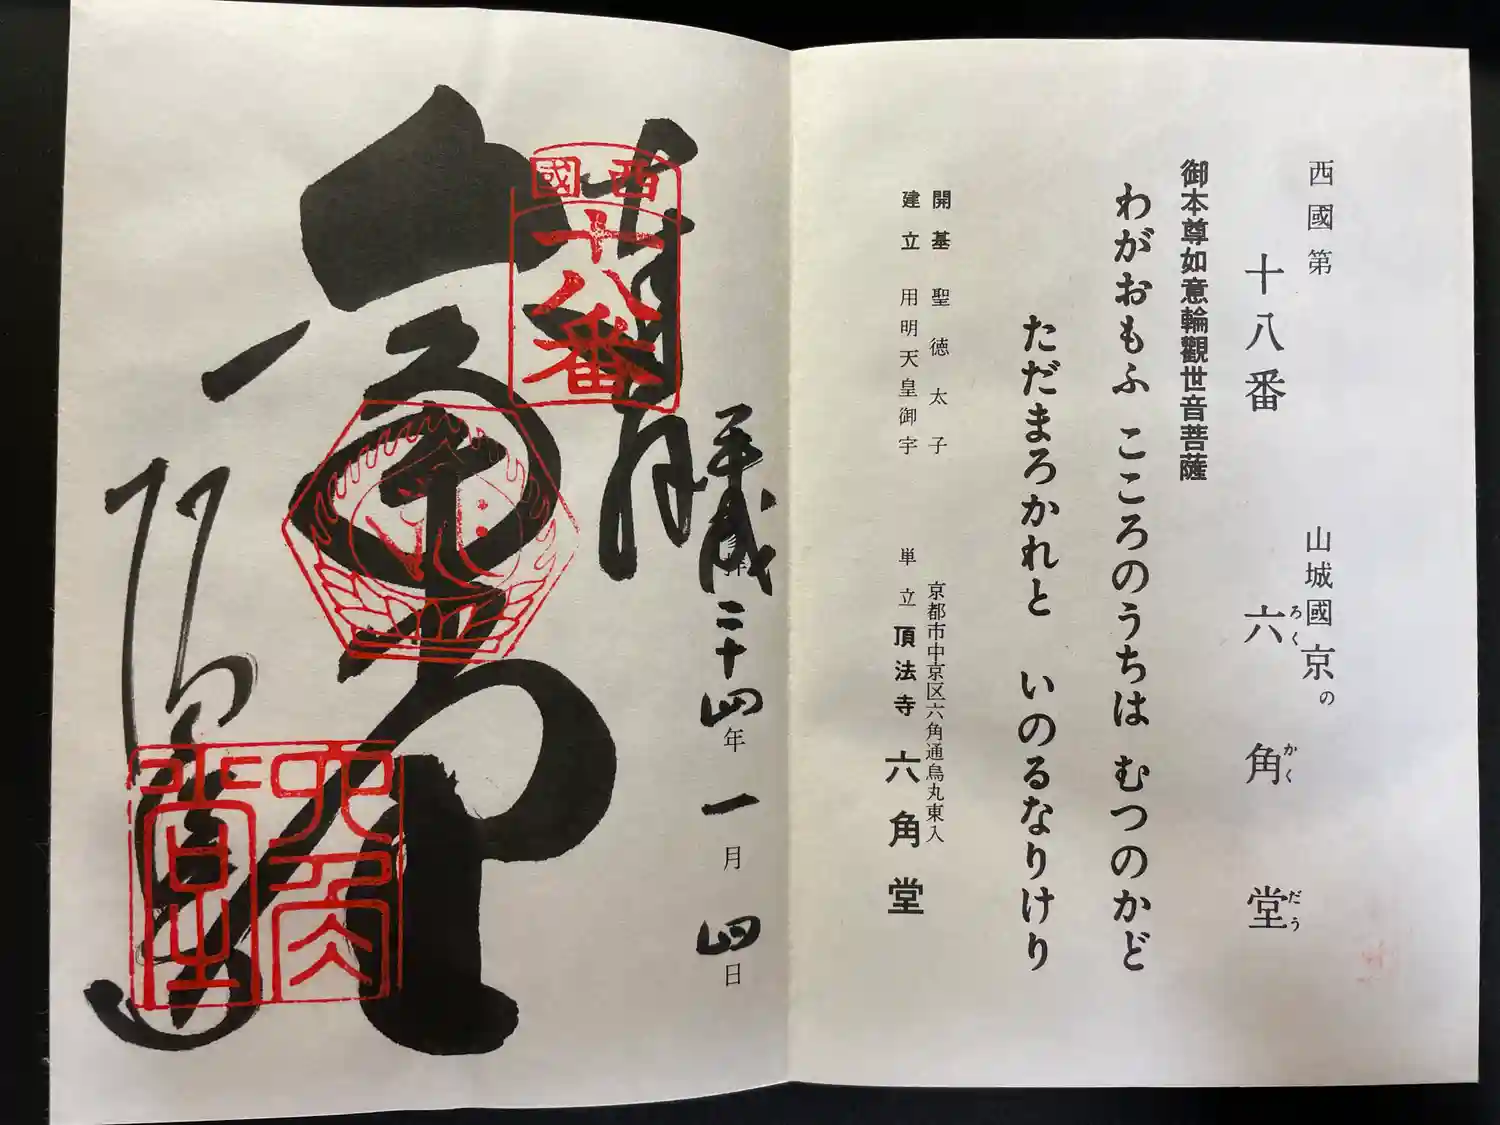 西國第
山城國京の
十八番 六角堂
ろく かく だう
御本尊如意輪觀世音菩薩
わがおもふ こころのうちは むつのかど
ただまろかれと いのるなりけり
開基 聖徳太子
建立 用明天皇御宇
京都市中京区六角通烏丸東入
単立 頂法寺 六角堂
奉拝
平成二十四年一月四日
西國
十八番
六角堂